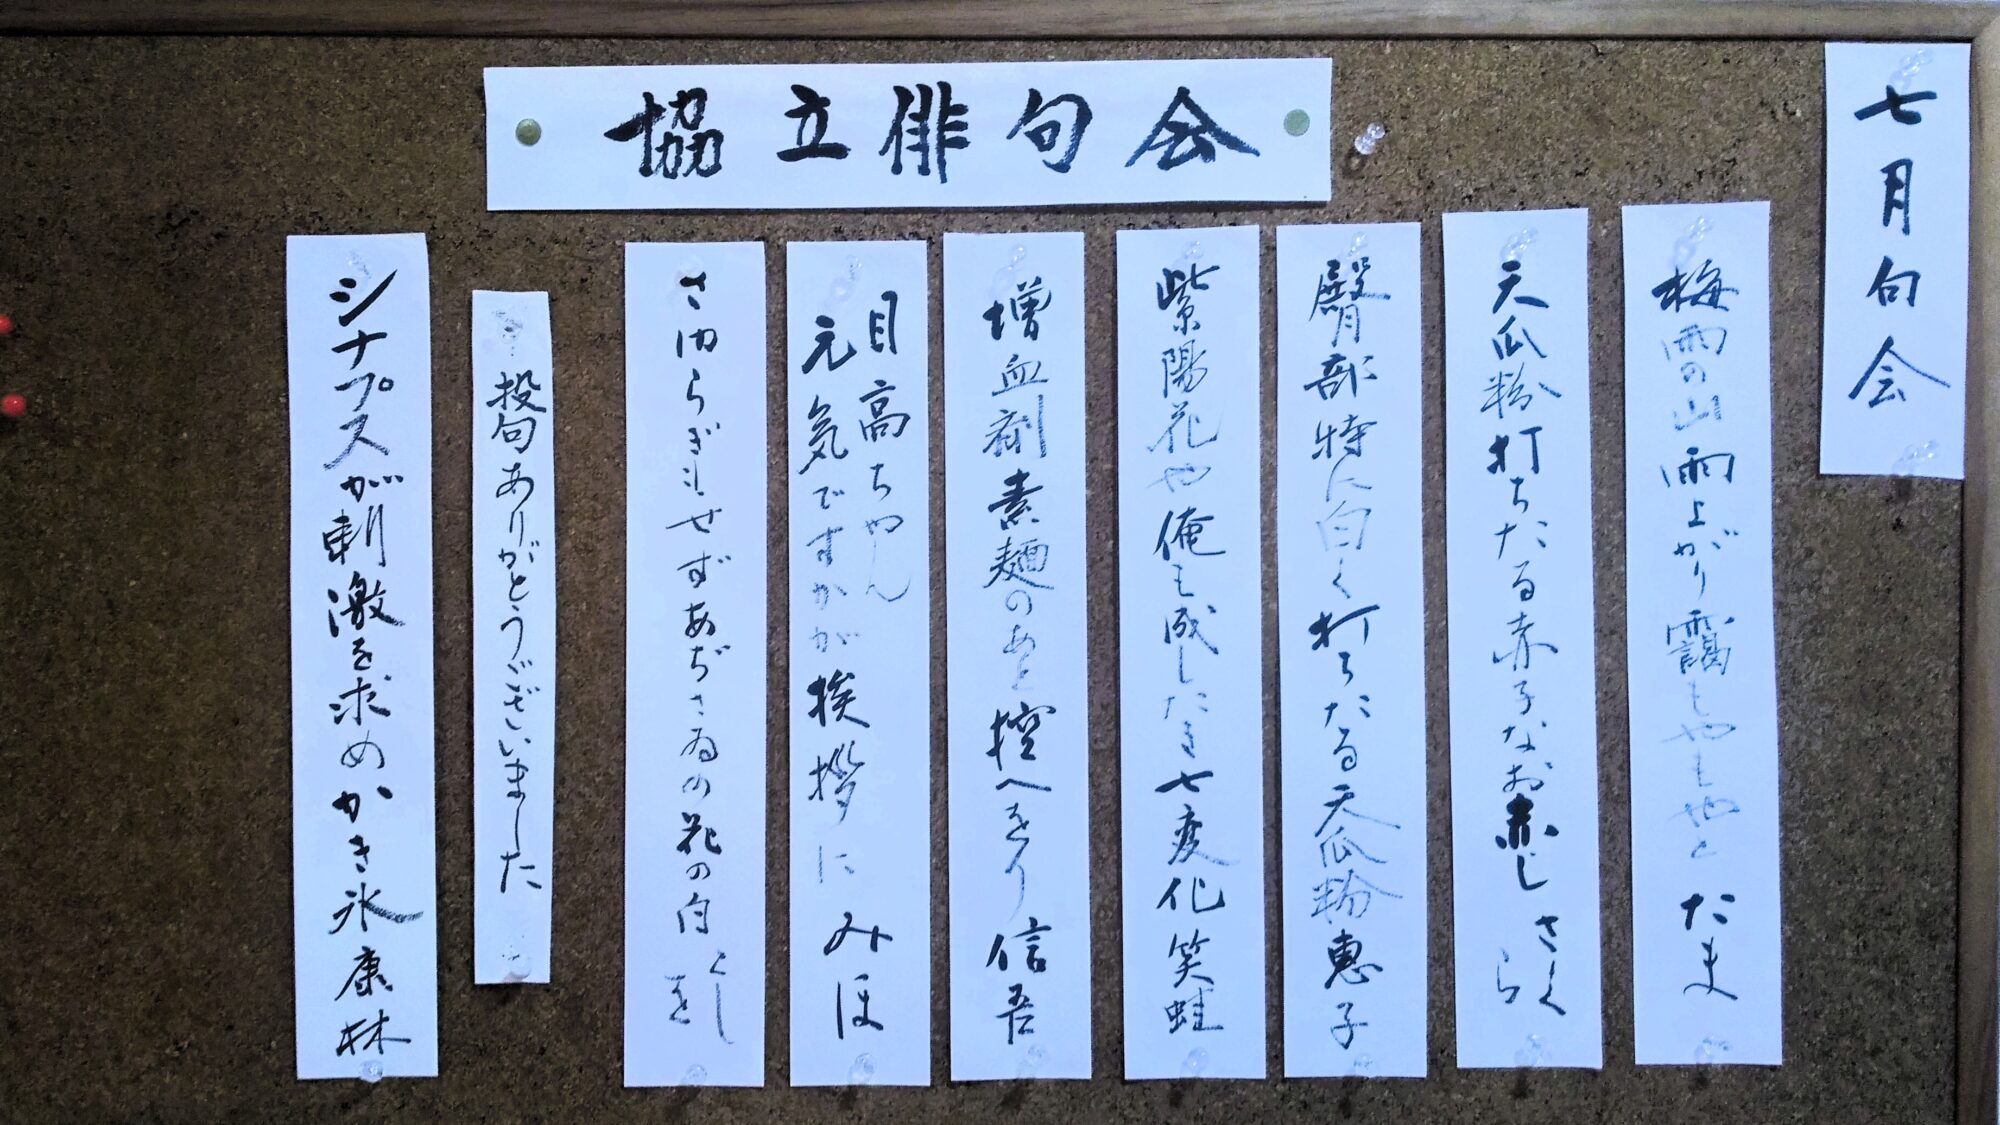 協立俳句会
七月句会
梅雨の山雨上がり靄もやもやと たま
天瓜粉打ちたる赤子なお赤し さくら
臀部特に白く打ちたる天瓜粉 恵子
紫陽花や俺も成したき七変化 笑蛙
増血剤素麺のあと控へをり 信吾
目高ちゃん
元気ですかが挨拶に みほ
さゆらぎもせずあぢさゐの花の白 としを
投句ありがとうございました
シナプスが刺激を求めかき氷 康林